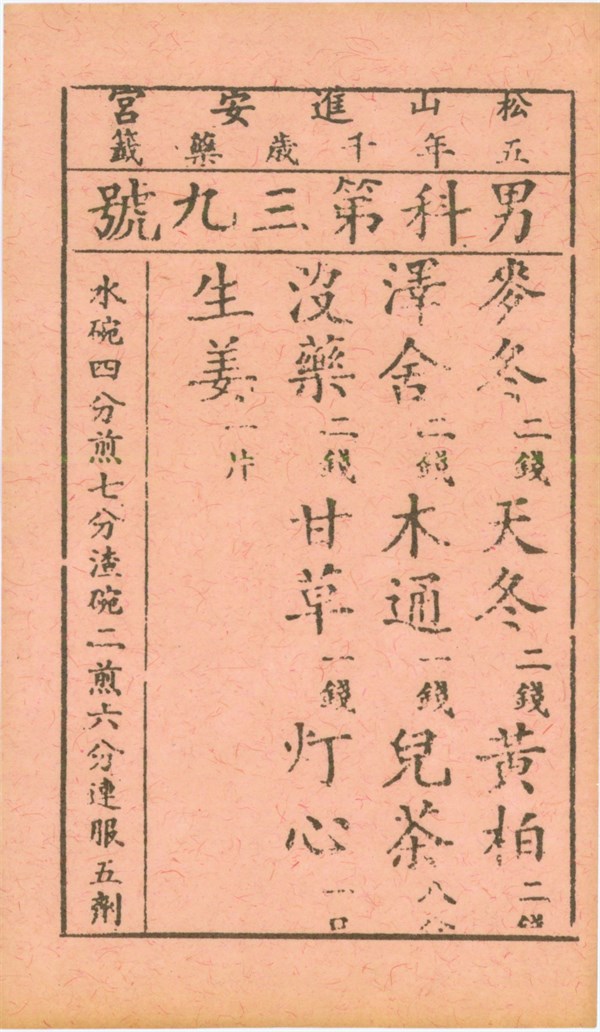 松山進安宮
五年千歲藥籤
男科第三九號
麥冬二錢 天冬二錢 黃柏二錢
澤舍二錢 木通一錢 兒茶八分
沒藥二錢 甘草一錢 灯心一
生姜一片
水碗四分煎七分渣碗二煎六分連服五劑